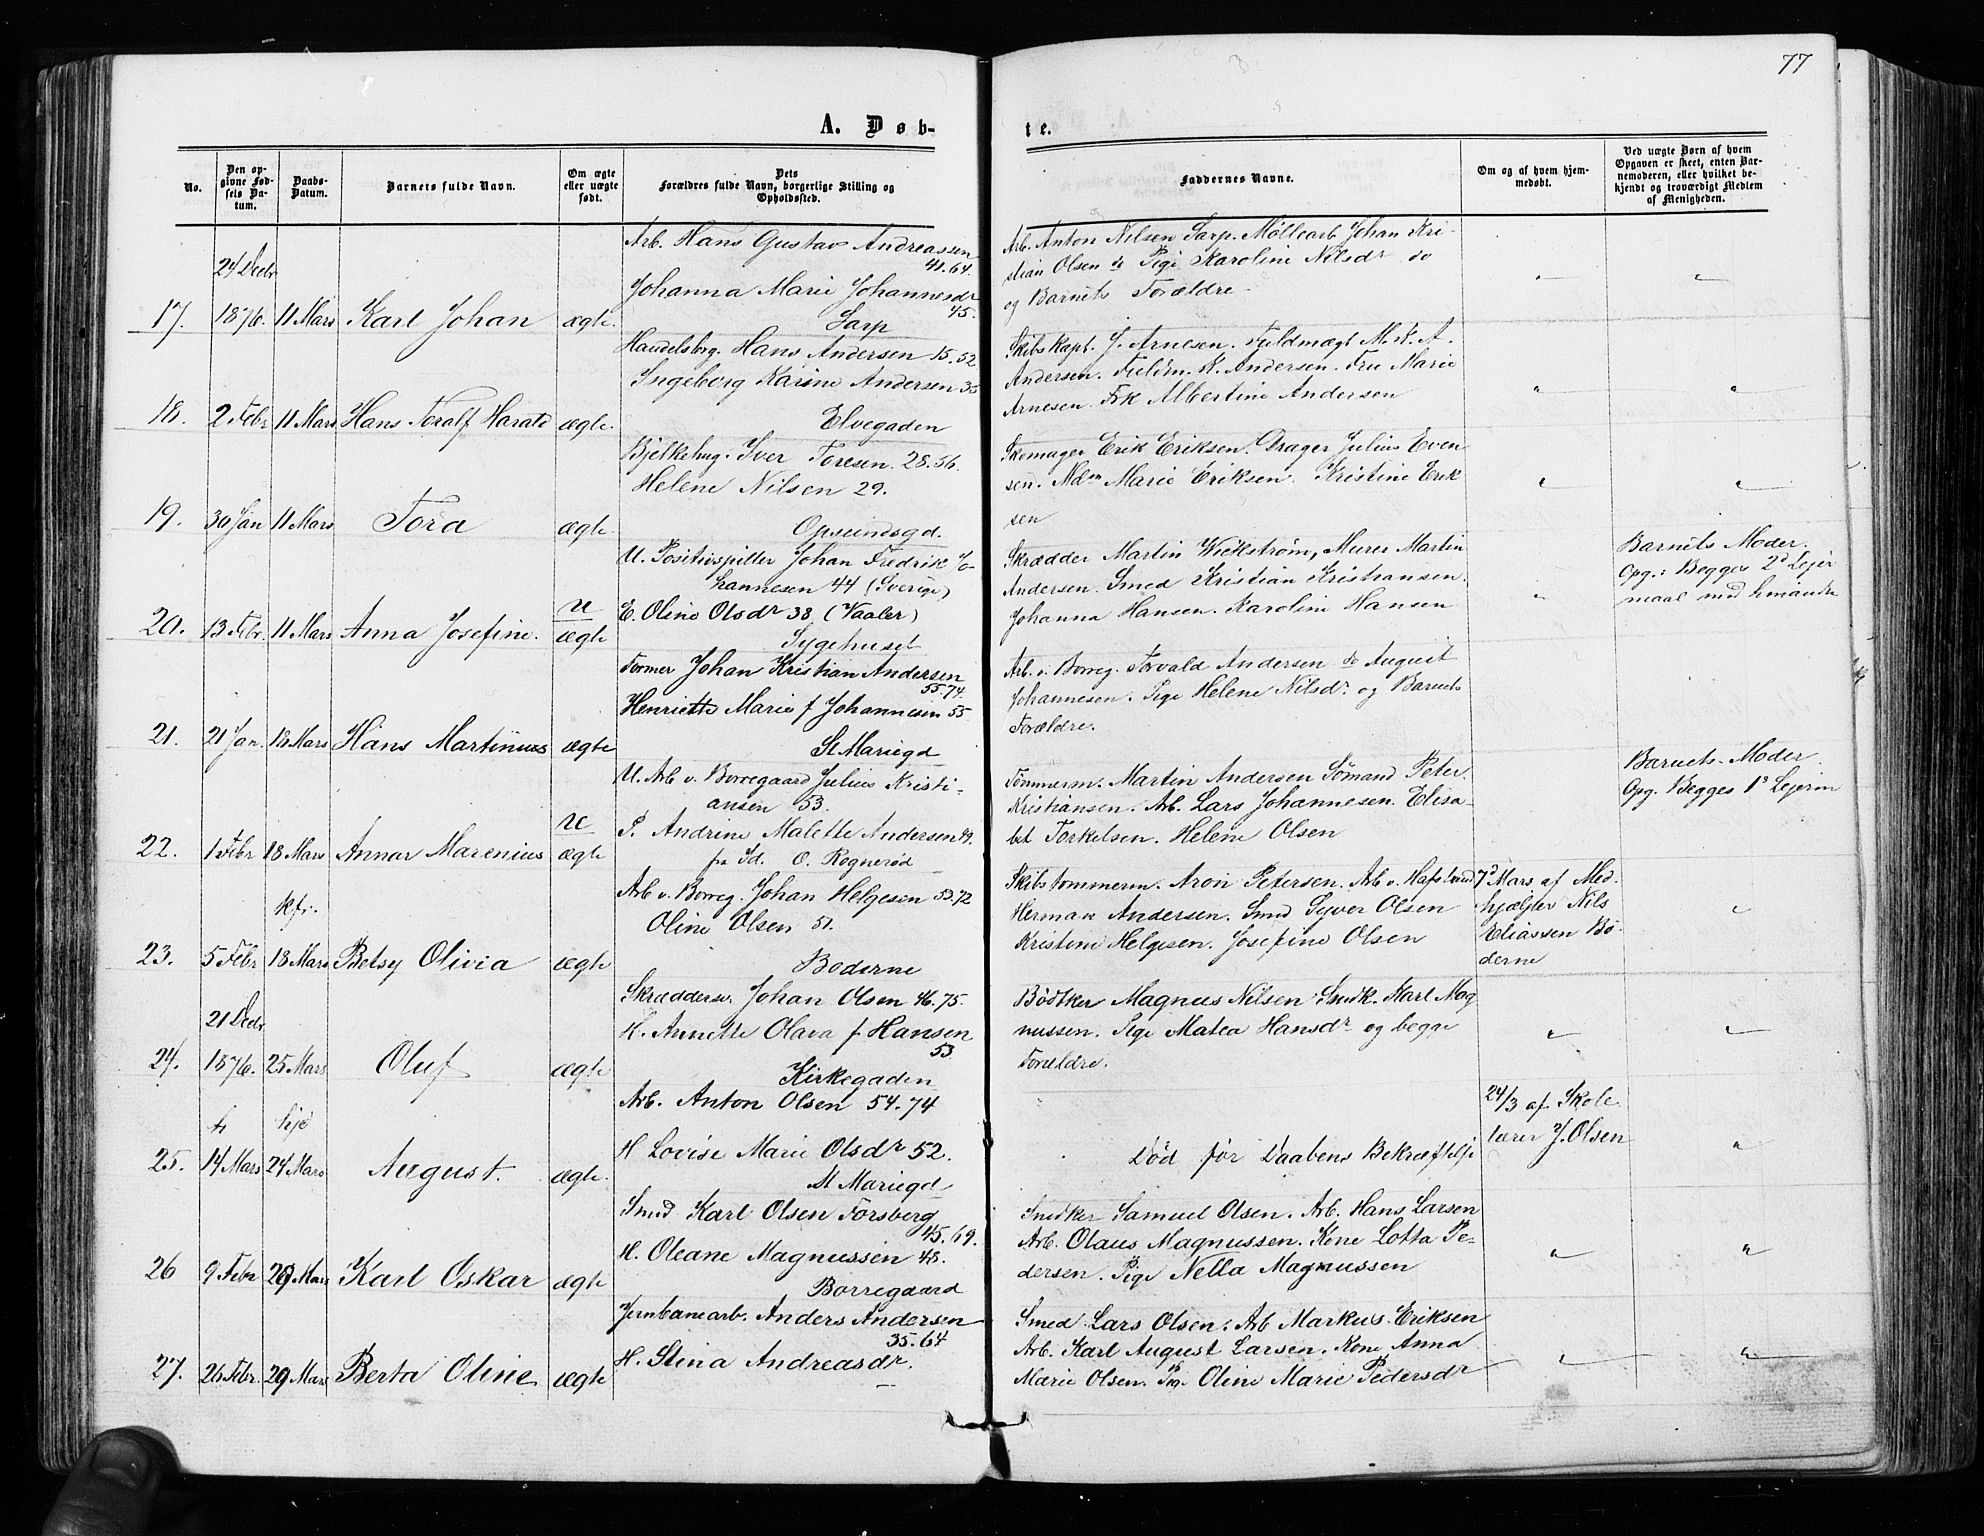 77
A. Døb-
te.
No.
Den opgivne Fødsels Datum.
Daabs-Datum.
Barnets fulde Navn.
Om ægte eller uægte født.
Dets Forældres fulde Navn, borgerlige Stilling og Opholdssted.
Faddernes Navne.
Om og af hvem hjemmedøbt.
Ved uægte Børn af hvem Opgaven er skeet, enten Barnemoderen, eller hvilket bekjendt og troværdigt Medlem af Menigheden.
Arb. Hans Gustav Andreassen
41.64.
24 Decbr
Johanna Marie Johannesdr
45.
17. 1876. 11 Mars Karl Johan ægte. Sarp
Arb. Anton Nilsen Sarp. Møllearb Johan Kri-
stian Olsen do Pige Karoline Nilsdr do
og Barnets Forældre.
Handelsborg. Hans Andersen 15.52
Ingeborg Karine Andersen 35
18. 2 Febr 11 Mars Hans Toralf Harald ægte. Elvegaden
Skibskapt. J. Arnesen. Fuldmægt M. A.
Andersen. Fuldm. K. Andersen. Fru Marie
Arnesen. Frk Albertine Andersen
Bjelkehug. Iver Toresen. 28.56.
Helene Nilsen 29.
19. 30 Jan 11 Mars Tora ægte. Opsundsgd.
Skomager Erik Eriksen. Drager Julius Even
sen. Mdm Marie Eriksen. Kristine Erik
sen
U. Positivspiller Johan Fredrik Jo-
hannesen 44 (Sverige)
u E. Oline Olsdr 38 (Vaaler)
20. 13 Febr. 11 Mars Anna Josefine. ægte Sygehuset
Skrædder Martin Wickstrøm, Murer Martin
Andersen. Smed Kristian Kristiansen.
Johanna Hansen. Karoline Hansen
Barnets Moder.
Opg.: Begges 2d Lejer
maal med hinanden
Former Johan Kristian Andersen
55.74.
Henriette Marie f Johannesen 55
21. 21 Jan. 18 Mars Hans Martinius ægte St Mariegd
Arb. v. Borreg. Torvald Andersen do August
Johannesen. Pige Helene Nilsdr. og Barnets
Forældre.
U. Arb v. Borregaard Julius Kristi-
ansen 53.
u P. Andrine Malette Andersen 49.
22. 1 Febr 18 Mars Annar Marenius ægte fra Id. O. Rognerød
Tømmerm. Martin Andersen Sømand Peter
Kristiansen. Arb. Lars Johannesen. Elisa-
bet Torkelsen. Helene Olsen
Barnets Moder
Opg. Begges 1s Lejerm
Arb v. Borreg. Johan Helgesen 53.72
kfr. Oline Olsen 51.
23. 5 Febr 18 Mars Betsy Olivia ægte Boderne
Skibstømmerm. Aron Petersen. Arb v. Hafslund
Herman Andersen. Smed Syver Olsen
Kristine Helgesen. Josefine Olsen
7d Mars af Med-
hjælper Nils
Eliassen Bo-
derne
Skræddersv. Johan Olsen 46.75.
21 Decbr
H. Annette Olava f Hansen
53.
24. 1876. 25 Mars Oluf ægte Kirkegaden
Bødtker Magnus Nilsen Snedk. Karl Mag
nussen. Pige Matea Hansdr og begge
Forældre.
Arb. Anton Olsen 54.74
hjd
H Lovise Marie Olsdr 52.
25. 14 Mars 24 Mars August. ægte. St Mariegd
Død før Daabens Bekræftelse
24/3 af Skole
lærer J. Olsen
Smed Karl Olsen Forsberg
45.69.
H. Oleane Magnussen 48.
26 9 Febr 29 Mars Karl Oskar ægte Borregaard
Snedker Samuel Olsen. Arb. Hans Larsen
Arb. Olaus Magnussen. Kone Lotta Pe-
dersen. Pige Nella Magnussen
Jernbanearb. Anders Andersen
35.64
H. Stina Andreasdr.
27. 26 Febr. 29 Mars Berta Oline ægte
Smed Lars Olsen. Arb Markus Eriksen
Arb. Karl August Larsen. Kone Anna
Marie Olsen. Pig. Oline Marie Pedersdr